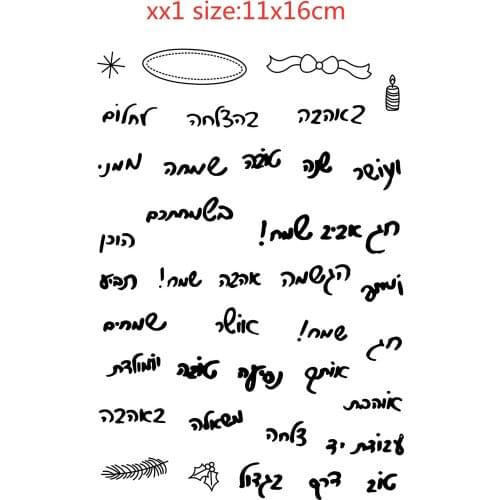 xx1 size:11x16cm
באהבה בהצלחה לחלום
ועושר שנה טובה שמחה ממני
בשמחתכם
חג אביב שמח! הוכן
ומתוק הגשמה אהבה שמח! תביע
חג שמח! אושר שמחים
אותך נסיעה טובה ויומולדת
אוהבת
באהבה משאלה צלחה עבודת יד
טוב דרך בגדול